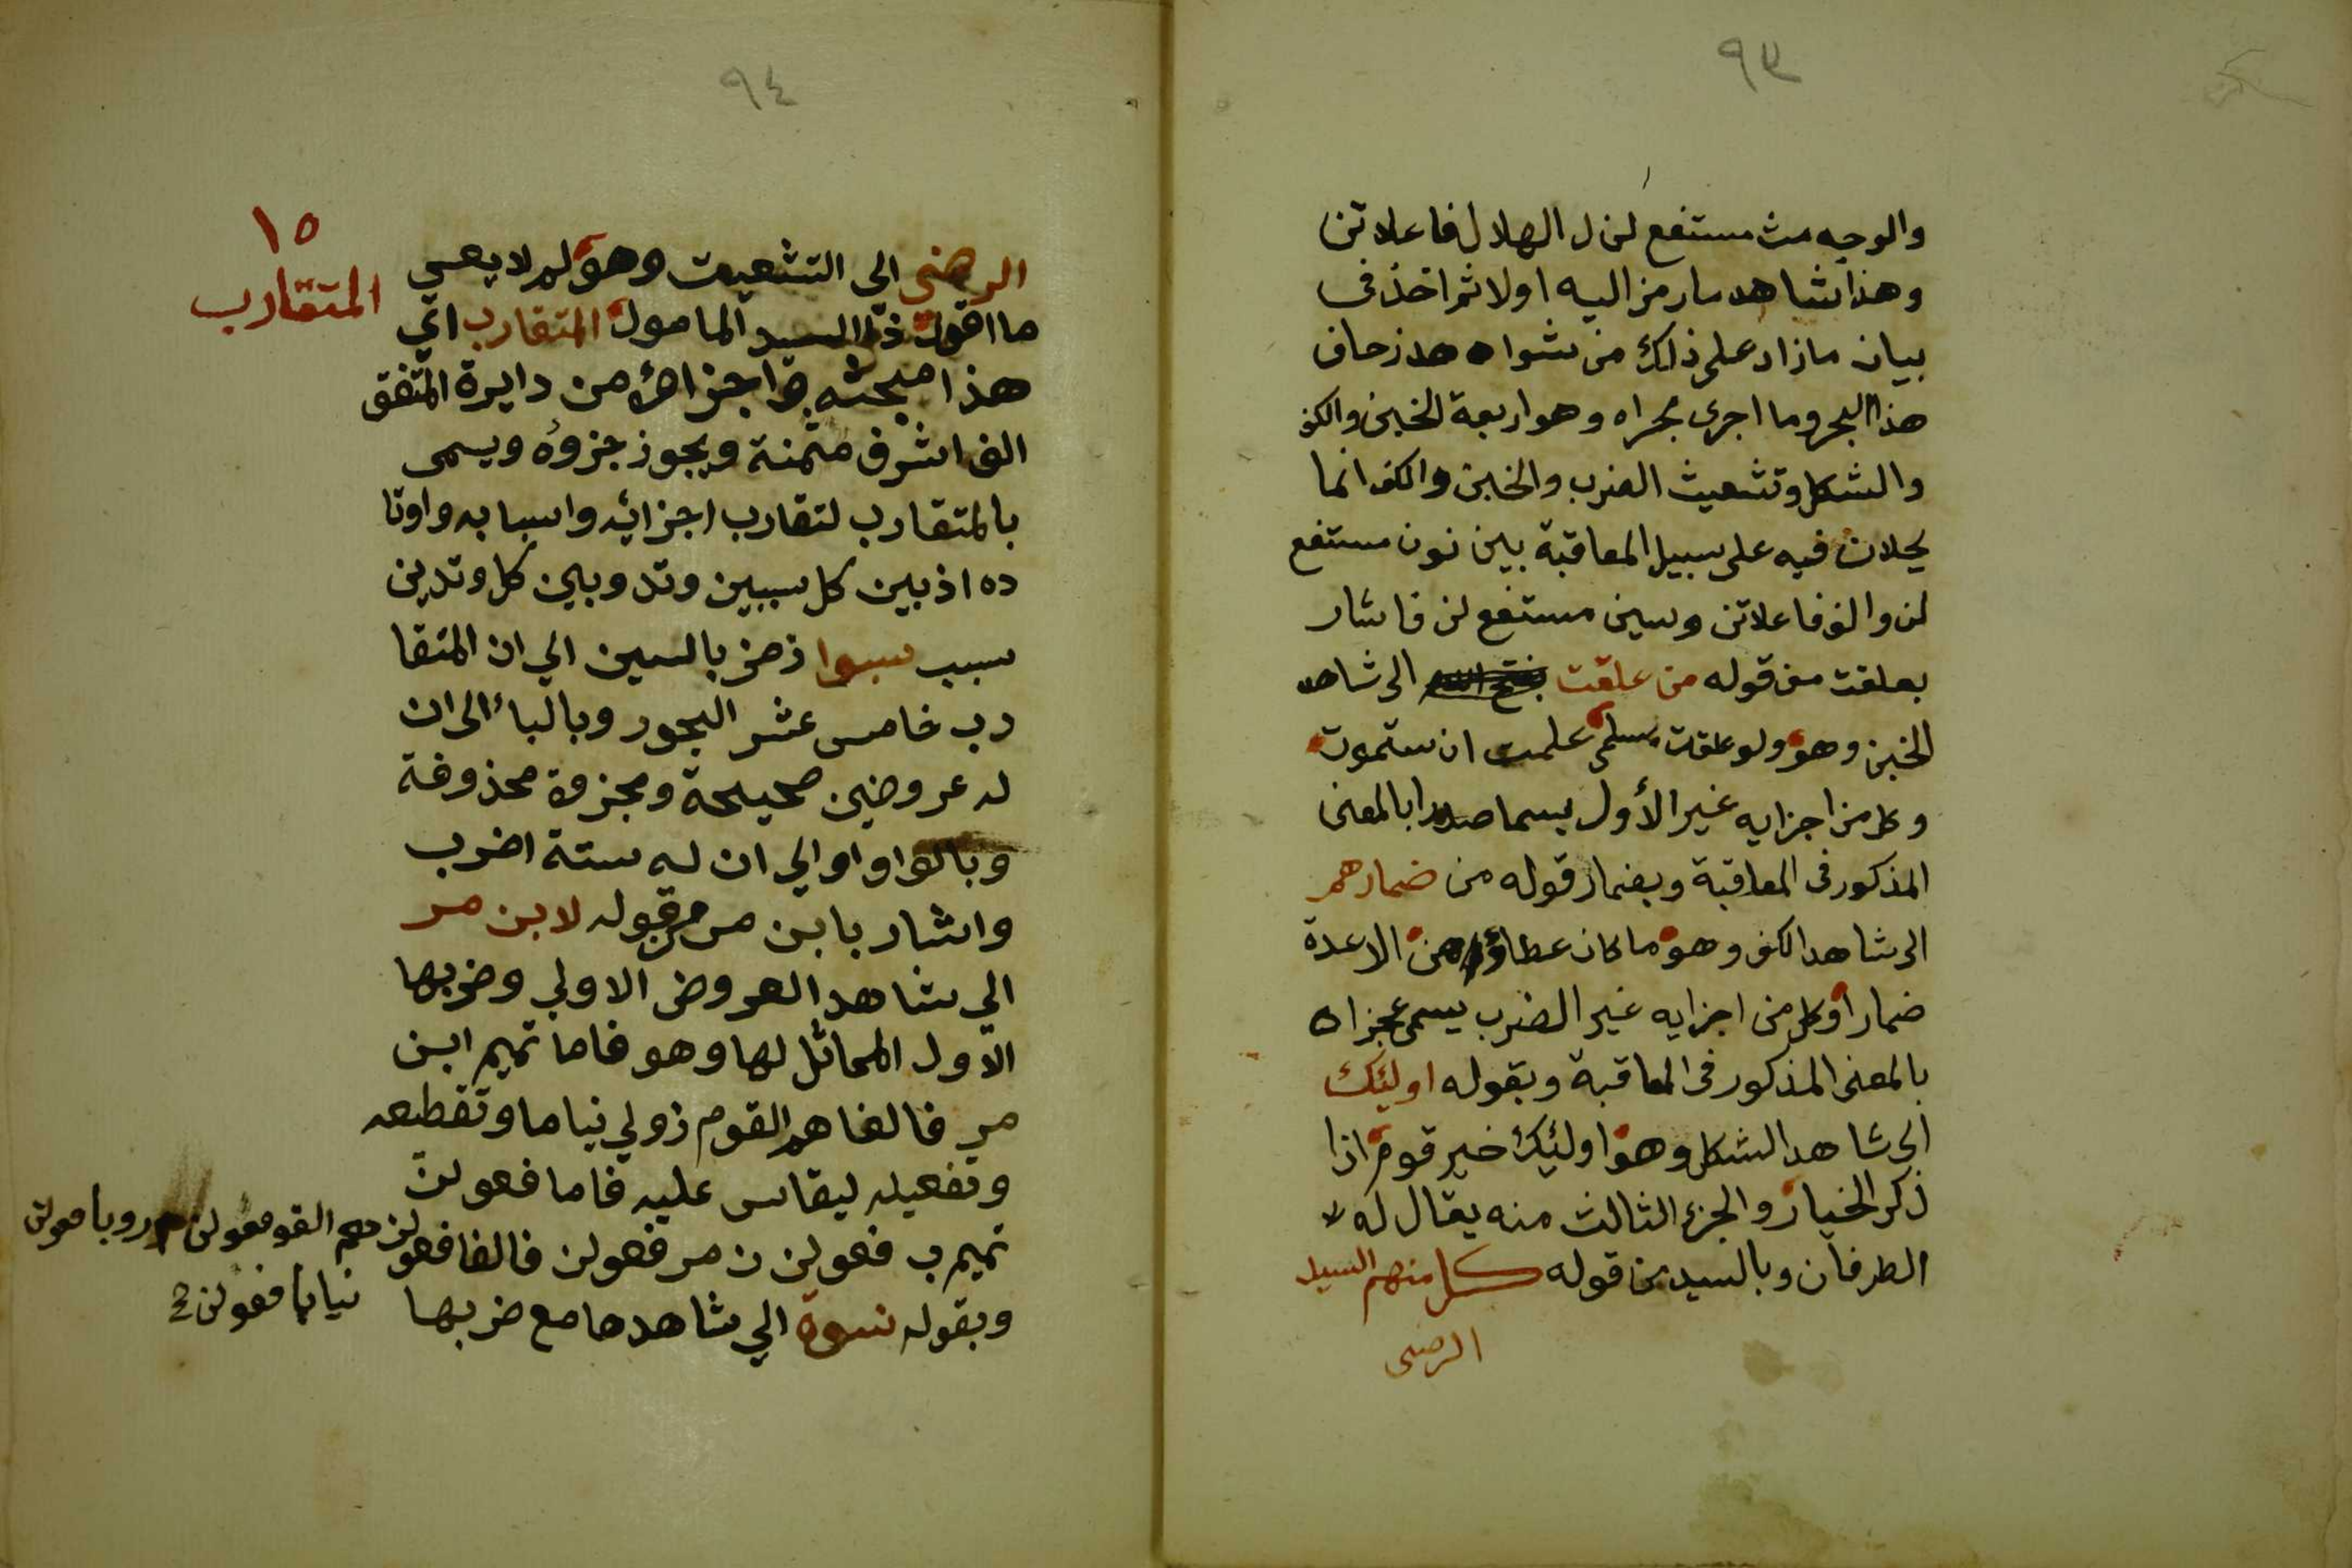 ٩٣
والوجه مث مستفع لن ل الهلال فاعلاتن
وهذا شاهد ما رمز اليه اولا ثم اخذ في
بيان ما زاد على ذلك من شواهد زحاف
هذا البحر وما اجرى مجراه وهو اربعة الخبن والكف
والشكل وتشعيث الضرب والخبن والكف انما
يحلان فيه على سبيل المعاقبة بين نون مستفع
لن والف فاعلاتن وسين مستفع لن فاشار
بعلقت من قوله من علقت الى شاهد
الخبن وهو ولو علقت بسلمى علمت ان ستموت
وكل من اجزايه غير الأول يسما صدرا بالمعنى
المذكور في المعاقبة وبضمار قوله من ضمارهم
الى شاهد الكف وهو ما كان عطاؤهن الا عدة
ضمارا وكل من اجزايه غير الضرب يسمى عجزا ه
بالمعنى المذكور في المعاقبة وبقوله اوليئك
الى شاهد الشكل وهو اولئيك خير قوم اذا
ذكر الخيار والجزء الثالث منه يقال له
الطرفان وبالسيد من قوله كل منهم السيد
الرضى
٩٤
١٥
المتقارب
الرضي الى التشعيت وهو لم لا يعي
ما اقول ذا السيد المامول المتقارب اي
هذا مبحثه واجزاؤ من دايرة المتفق
الف اشرف مثمنة ويجوز جزوه ويسمى
بالمتقارب لتقارب اجزائه واسبابه واوتا
ده اذ بين كل سببين وتد وبين كل وتدين
سبب سبوا رمز بالسين الي ان المتقا
رب خامس عشر البحور وبالباء الى ان
له عروضين صحيحة ومجزوة محذوفة
وبالواو الي ان له ستة اضرب
واشار بابن مر من قوله لابن مر
الي شاهد العروض الاولي وضربها
الاول المماثل لها وهو فاما تميم ابن
مر فالفاهم القوم زولي نياما وتقطيعه
وتفعيله ليقاس عليه فاما فعولن
تميم ب فعولن ن مر فعولن فالفا فعولن هم القو فعولن م روبا فعولن
وبقوله نسوة الي شاهدها مع ضربها نياما فعولن